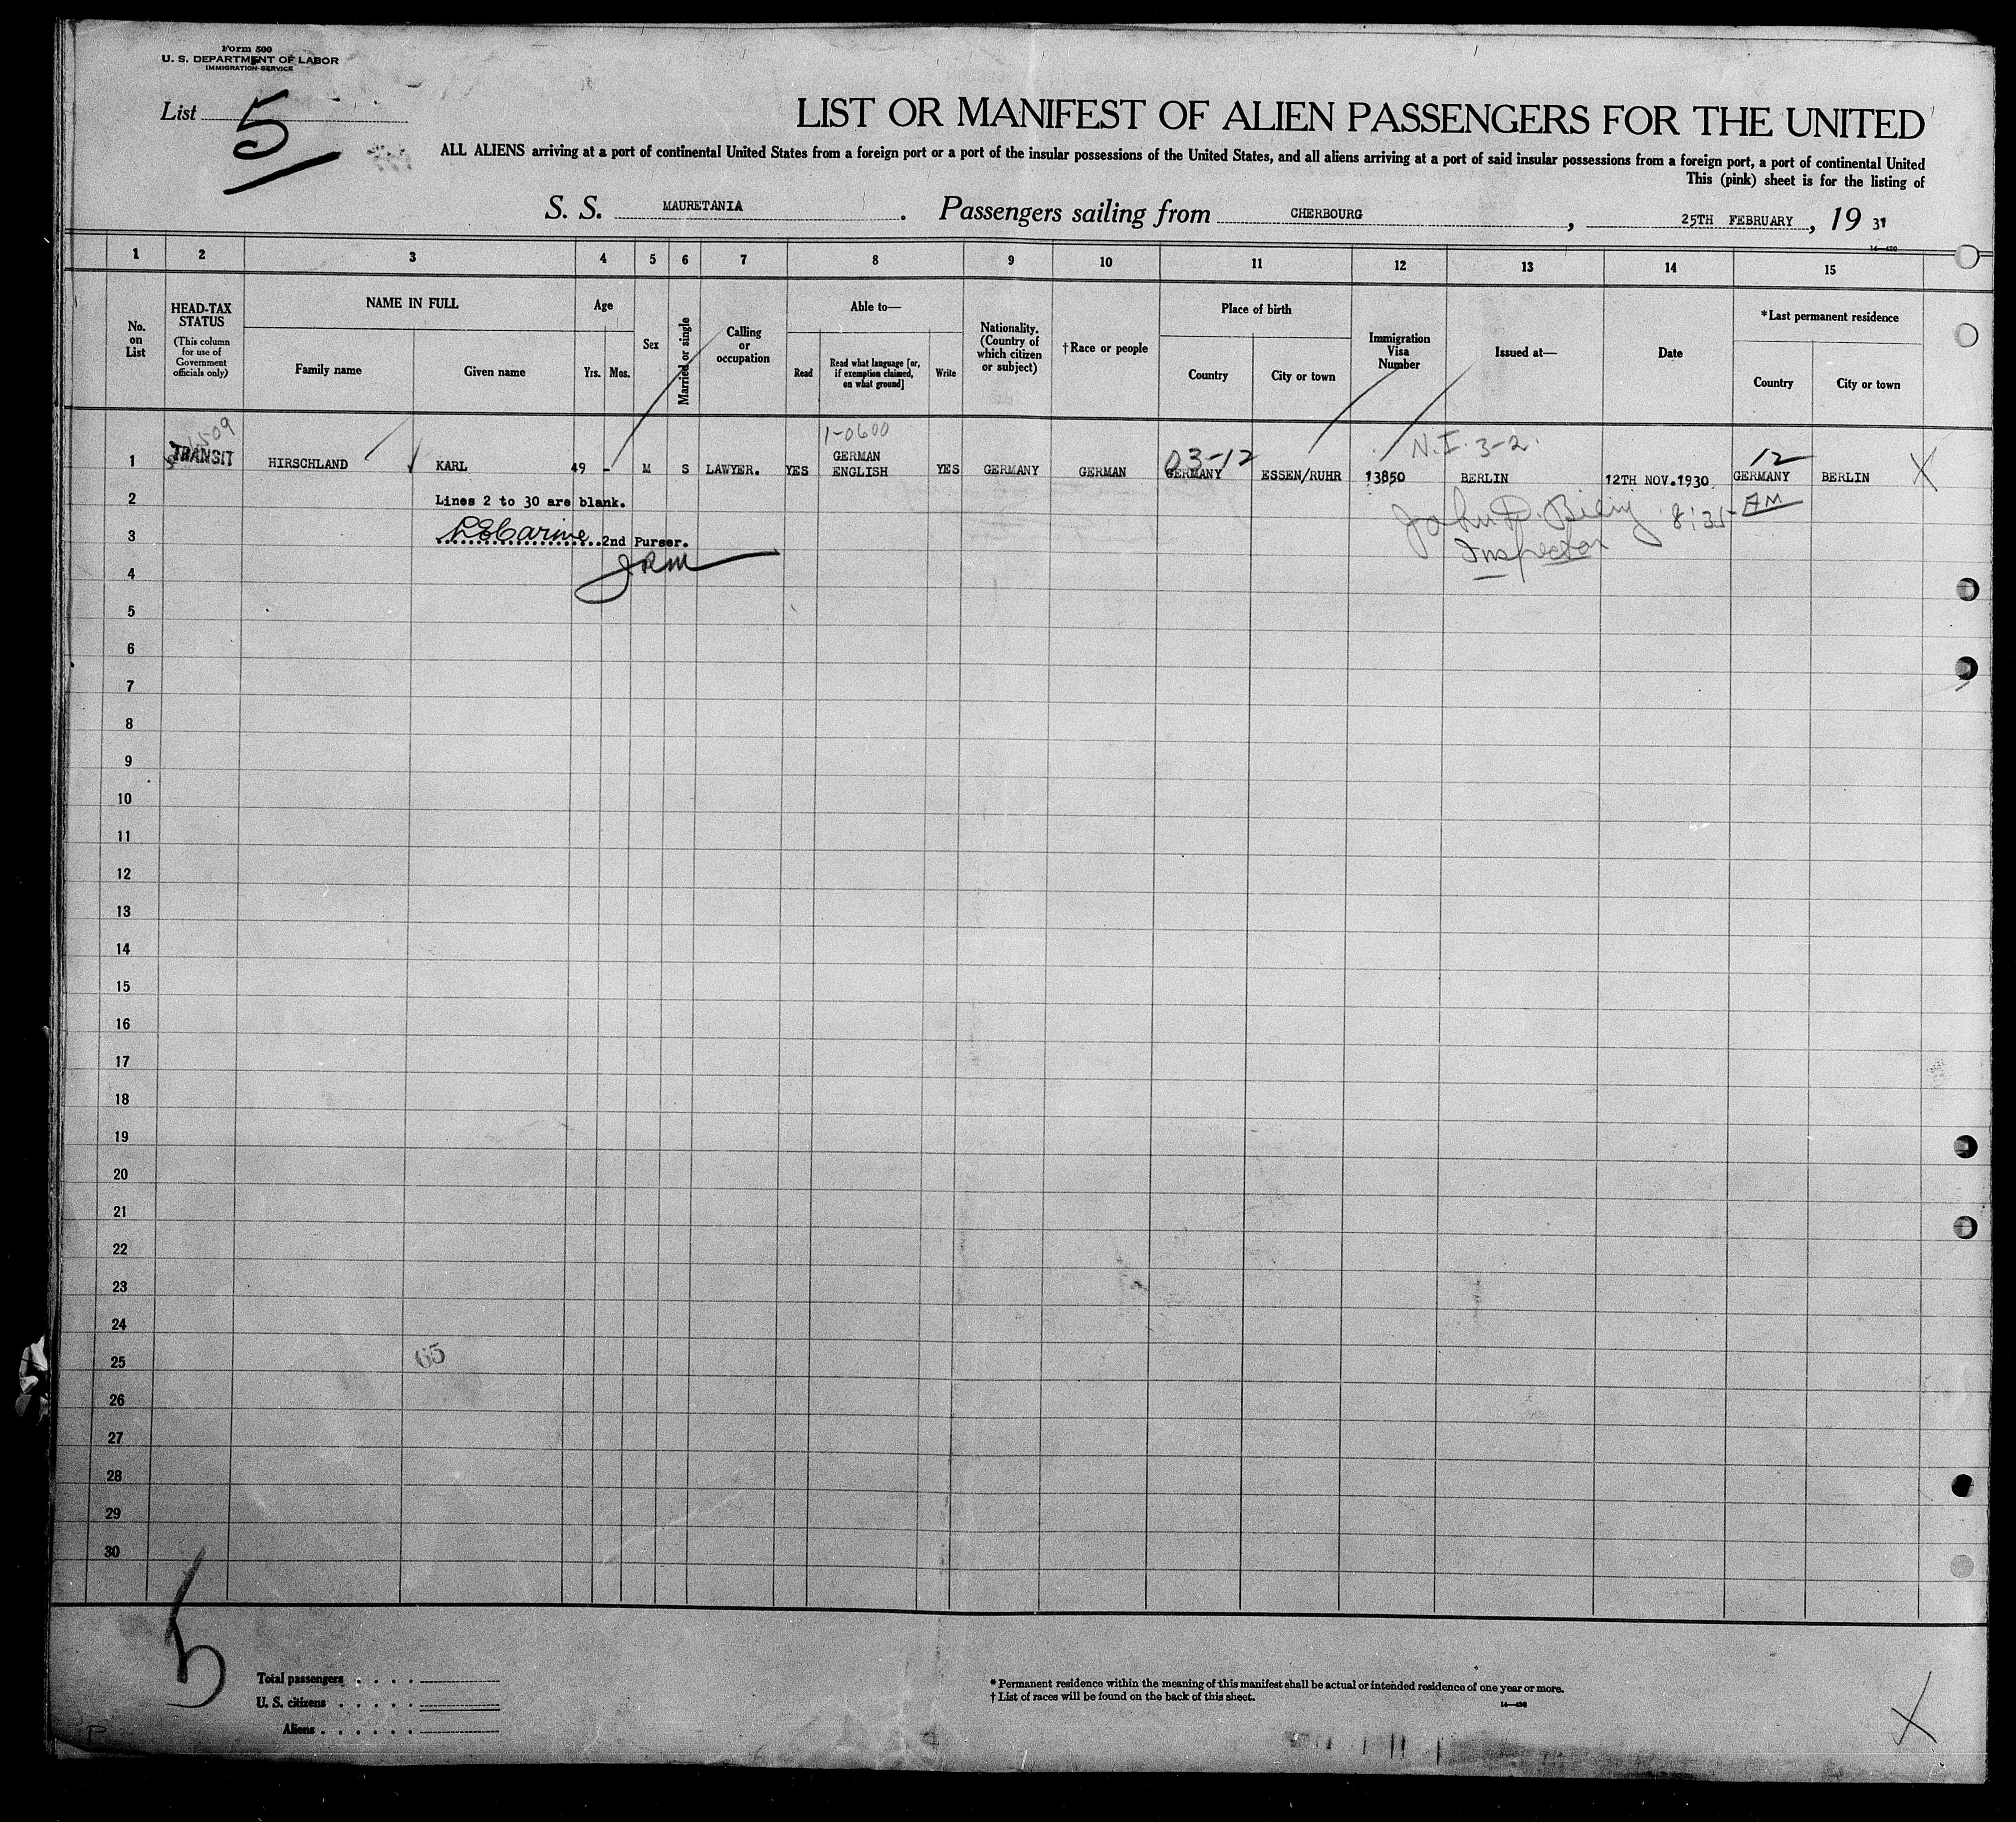 Form 500
U. S. DEPARTMENT OF LABOR
IMMIGRATION SERVICE
List 5
LIST OR MANIFEST OF ALIEN PASSENGERS FOR THE UNITED
ALL ALIENS arriving at a port of continental United States from a foreign port or a port of the insular possessions of the United States, and all aliens arriving at a port of said insular possessions from a foreign port, a port of continental United
This (pink) sheet is for the listing of
S. S. MAURETANIA. Passengers sailing from CHERBOURG, 25TH FEBRUARY, 19 31
14—430
1 2 3 4 5 6 7 8 9 10 11 12 13 14 15
No. on List
HEAD-TAX STATUS
(This column for use of Government officials only)
NAME IN FULL
Family name
Given name
Age
Yrs. Mos.
Sex
Married or single
Calling or occupation
Able to—
Read
Read what language [or, if exemption claimed, on what ground]
Write
Nationality. (Country of which citizen or subject)
† Race or people
Place of birth
Country
City or town
Immigration Visa Number
Issued at—
Date
*Last permanent residence
Country
City or town
1-0600
N.I. 3-2.
03-12
12
1 TRANSIT HIRSCHLAND KARL 49 - M S LAWYER. YES GERMAN ENGLISH YES GERMANY GERMAN GERMANY ESSEN/RUHR 13850 BERLIN 12TH NOV.1930 GERMANY BERLIN X
2 Lines 2 to 30 are blank.
John D. 8:35 AM
3 2nd Purser.
Inspector
JRM
4
5
6
7
8
9
10
11
12
13
14
15
16
17
18
19
20
21
22
23
24
25
65
26
27
28
29
30
5
Total passengers . . . .
U. S. citizens . . . . .
Aliens . . . . . .
* Permanent residence within the meaning of this manifest shall be actual or intended residence of one year or more.
† List of races will be found on the back of this sheet.
14—430
X
P